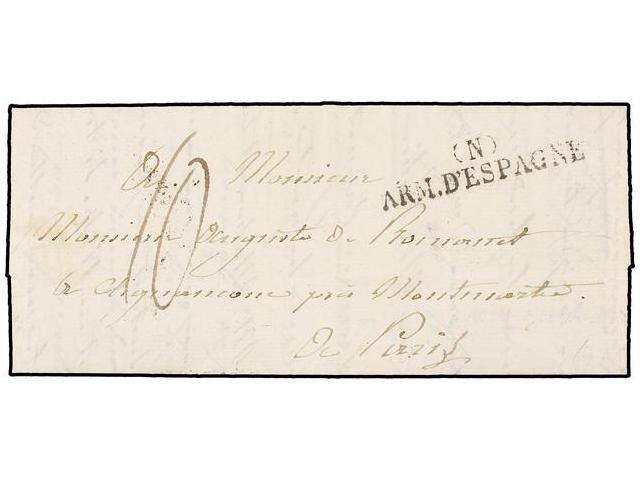 (N)
ARM. D'ESPAGNE
A Monsieur
Monsieur Auguste de Romanet
a Clignancour près Montmartre.
de Paris
10